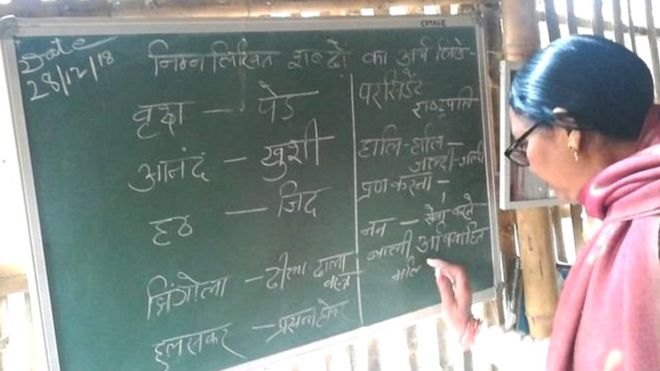 Date
28/12/18
निम्न लिखित शब्दों का अर्थ लिखे-
वृक्ष - पेड
आनंद - खुशी
हठ - जिद
झिंगोला - ढीला ढाला
वस्त्र
हुलसकर - प्रसन्न होकर
परसिडेंट
राष्ट्रपति
हालि-हालि-
जल्दी-जल्दी
प्रण करना -
नन - सेवा करने
वाली अविवाहित